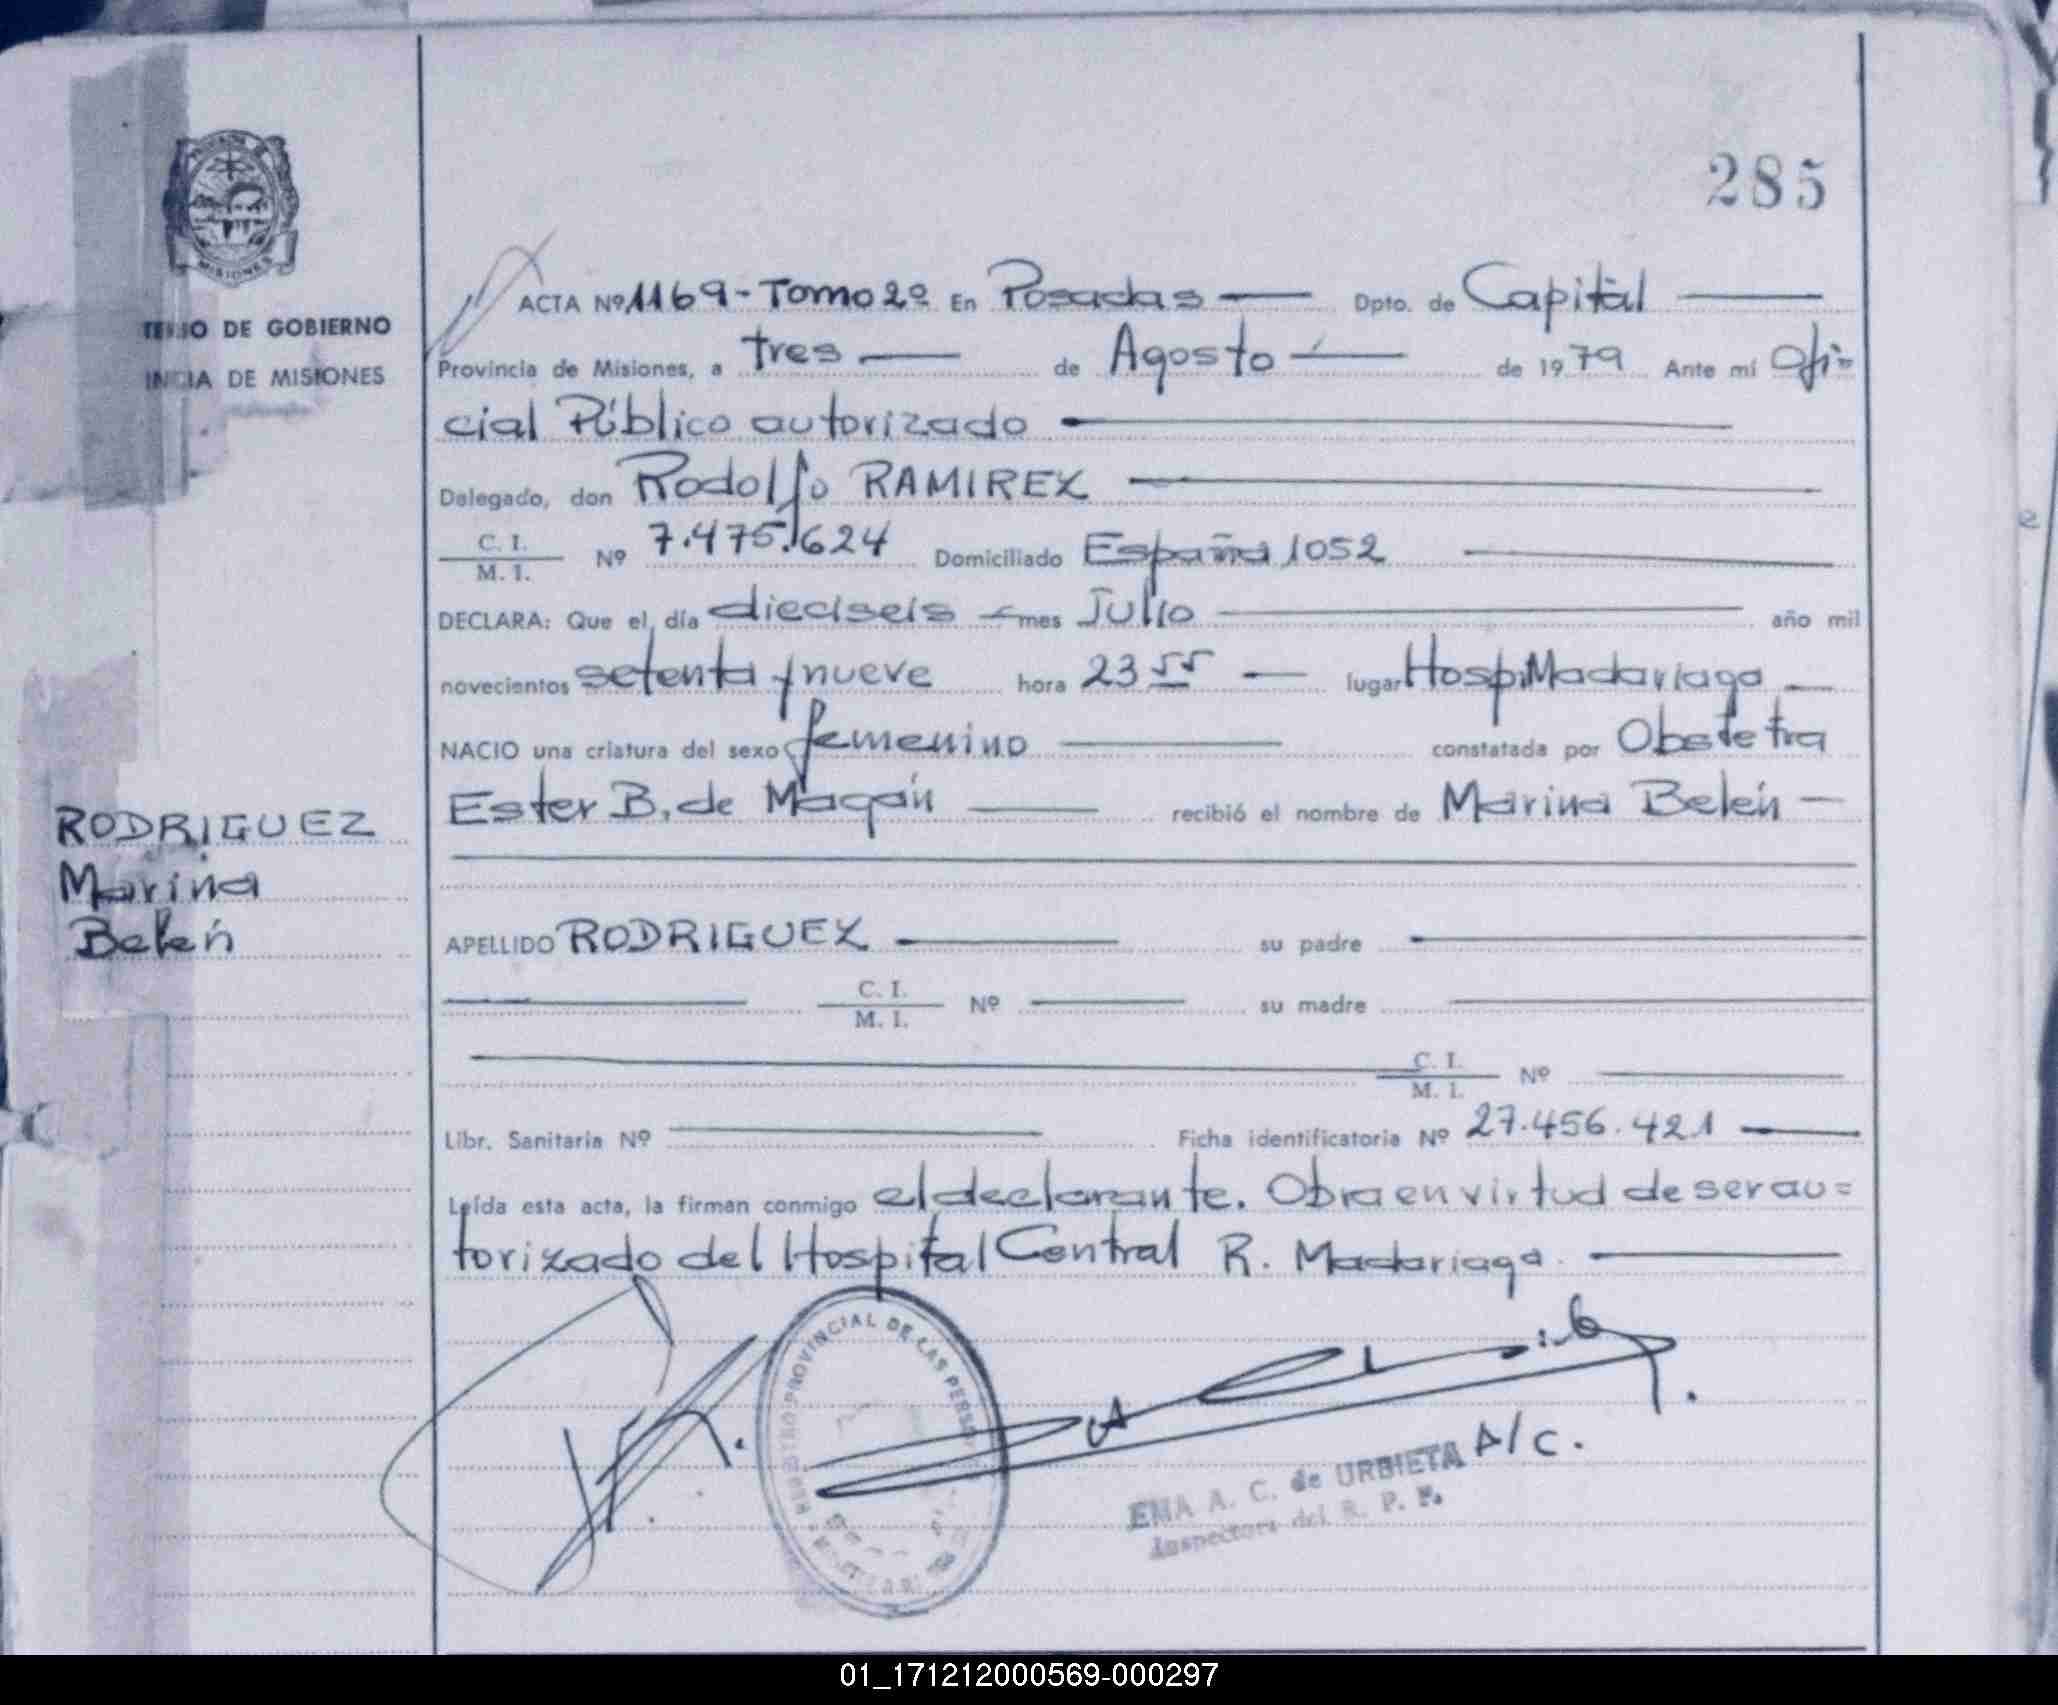 285
MISIONES
TERIO DE GOBIERNO
INCIA DE MISIONES
ACTA Nº 1169 - Tomo 2º En Posadas — Dpto. de Capital —
Provincia de Misiones, a tres — de Agosto — de 1979 Ante mí Ofi-
cial Público autorizado —
Delegado, don Rodolfo RAMIREZ —
C. I.
M. I. Nº 7.475.624 Domiciliado España 1052 —
DECLARA: Que el día dieciseis — mes Julio — año mil
novecientos setenta y nueve hora 23 55 — lugar Hosp. Madariaga —
NACIO una criatura del sexo femenino — constatada por Obstetra
Ester B. de Magán — recibió el nombre de Marina Belén —
RODRIGUEZ
Marina
Belén
APELLIDO RODRIGUEZ — su padre —
— C. I.
M. I. Nº — su madre —
— C. I.
M. I. Nº —
Libr. Sanitaria Nº — Ficha identificatoria Nº 27.456.421 —
Leída esta acta, la firman conmigo el declarante. Obra en virtud de ser au=
torizado del Hospital Central R. Madariaga. —
PROVINCIAL DE LAS PERSO
A/C.
EMA A. C. de URBIETA
Inspectora del R. P. P.
01_171212000569-000297